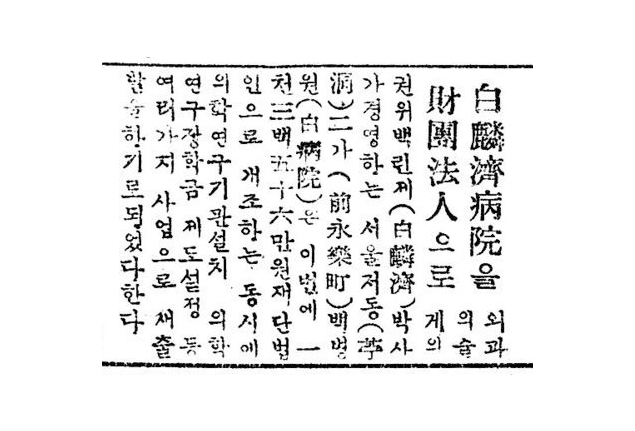 白麟濟病院을
財團法人으로
외과
의술
게의
권위백린제(白麟濟)박사
가경영하는 서울저동(苧
洞)二가(前永樂町)백병
원(白病院)은 이번에 一
천三백五十六만원재단법
인으로 개조하는 동시에
의학연구기관설치 의학
연구장학금 제도설정 등
여러가지 사업으로 재출
발을하기로되었다한다